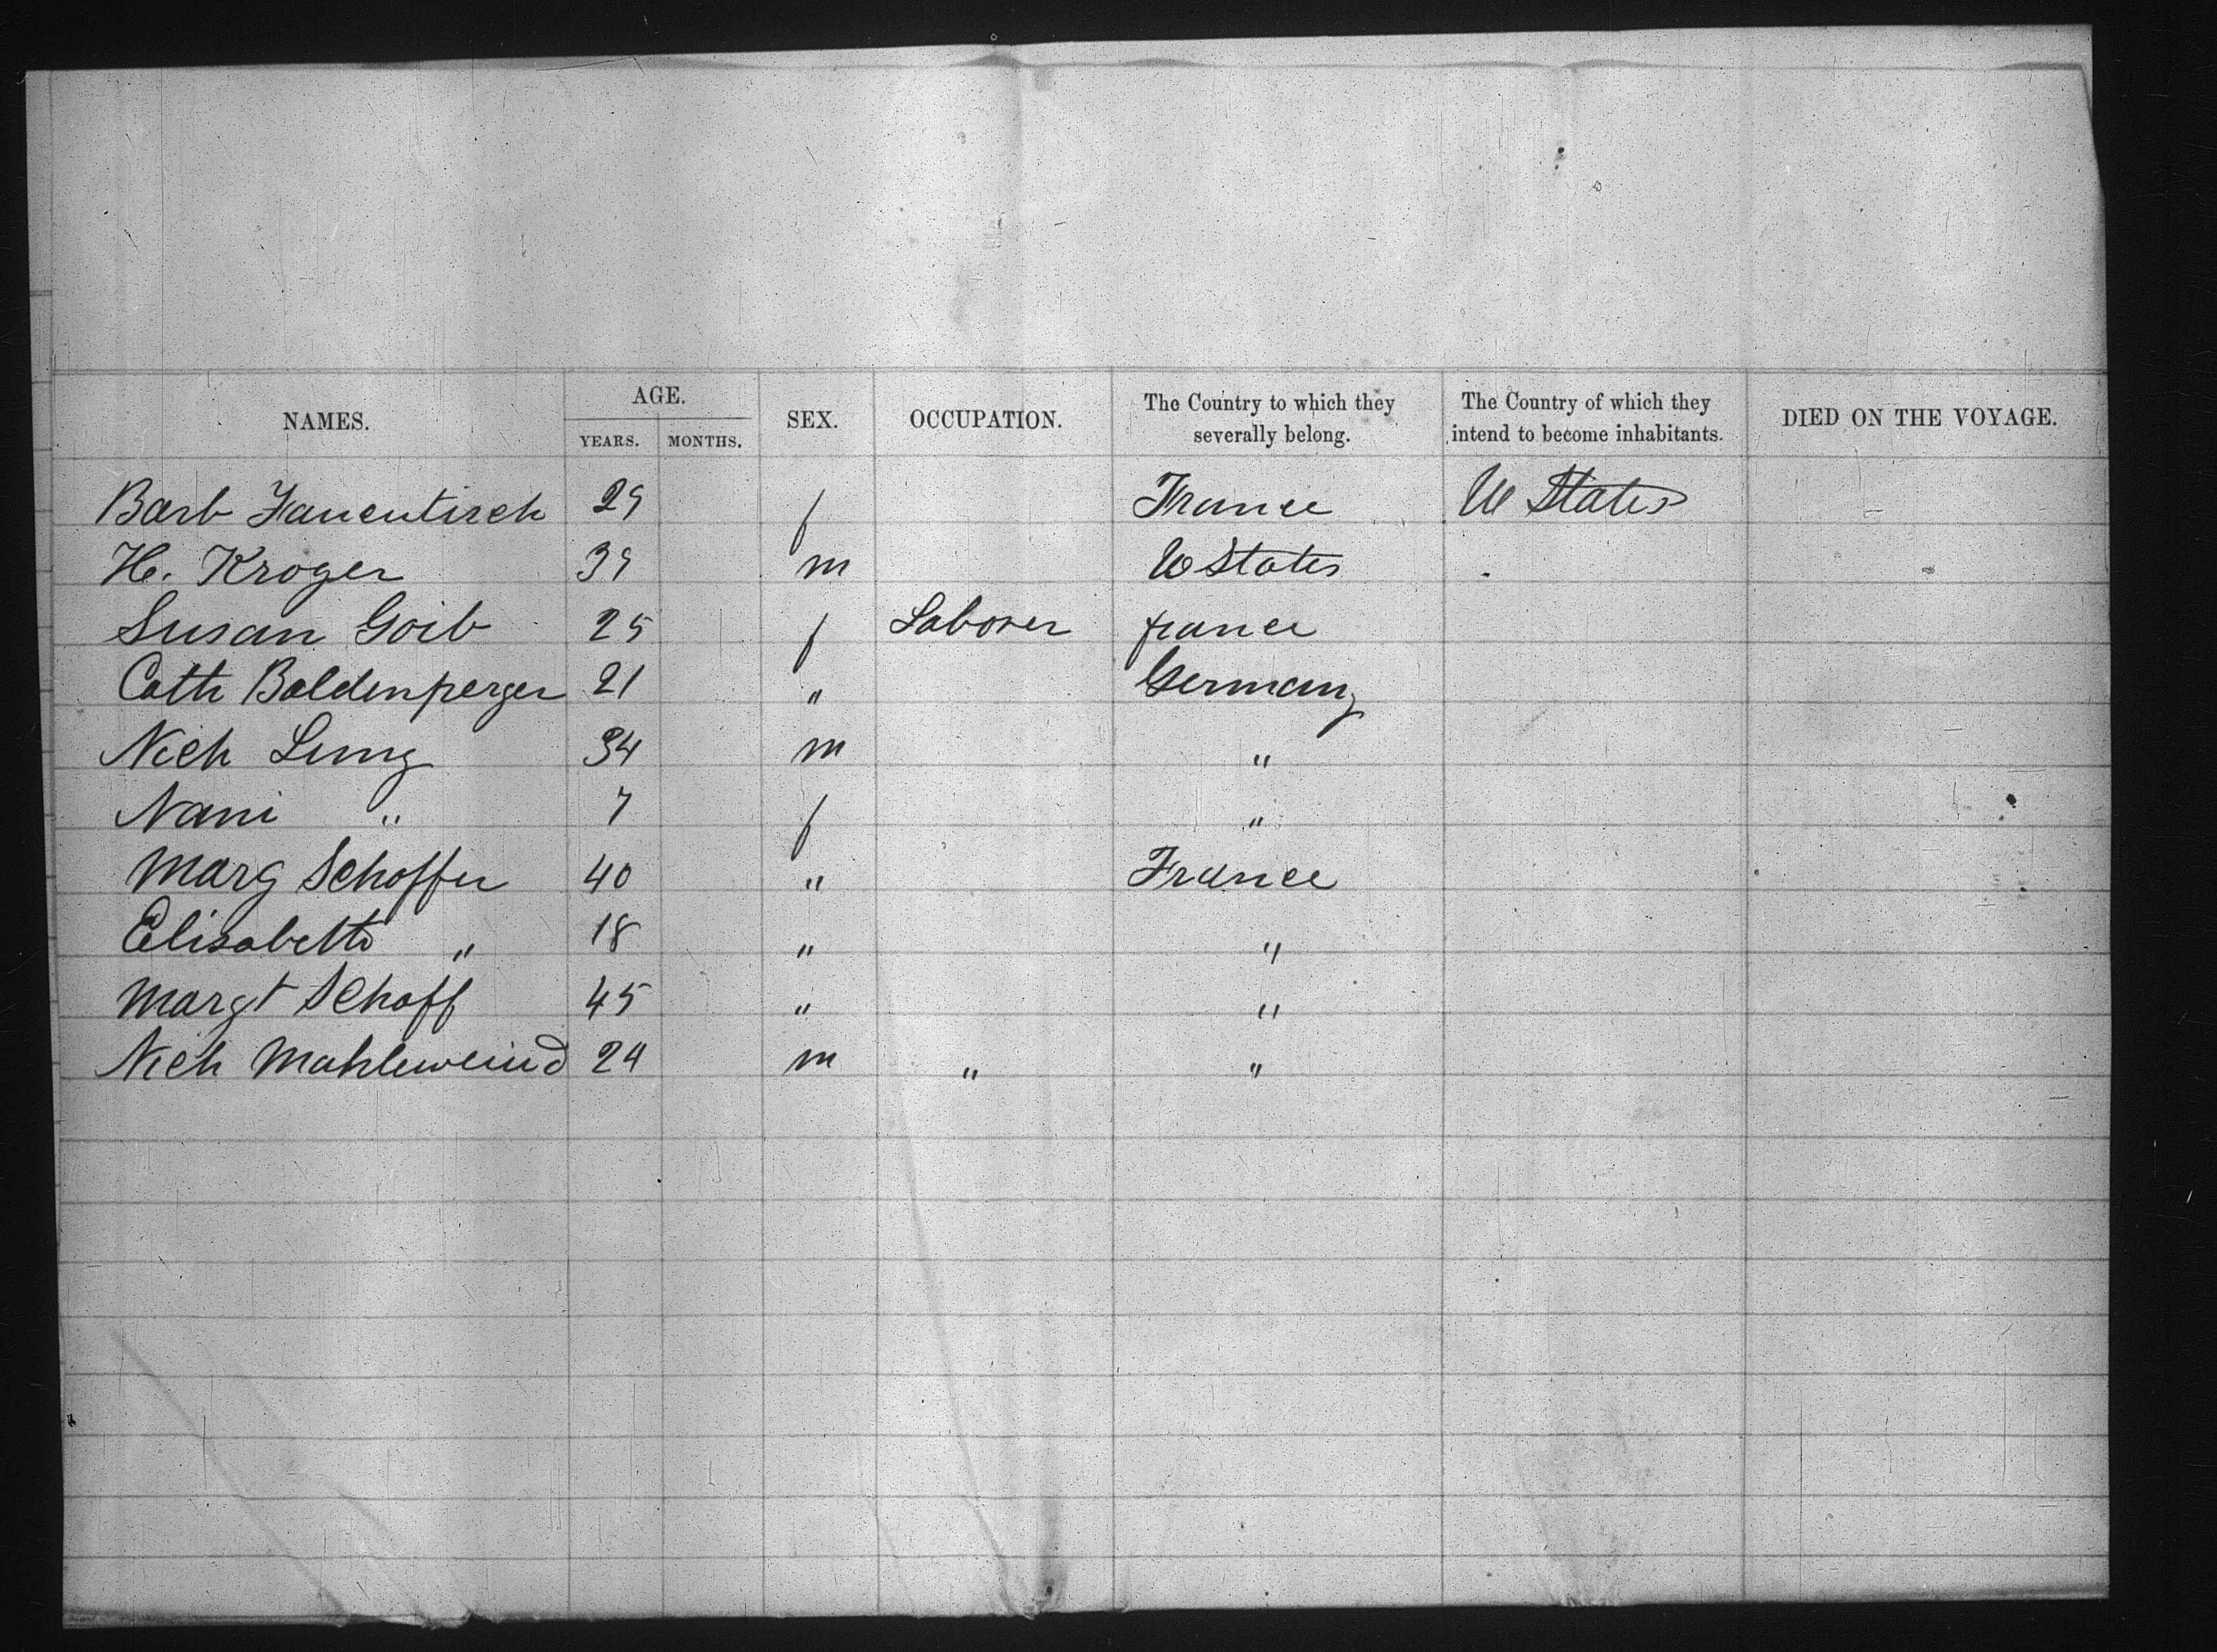 NAMES. AGE. YEARS. MONTHS. SEX. OCCUPATION. The Country to which they severally belong. The Country of which they intend to become inhabitants. DIED ON THE VOYAGE.
Barb 29 f France U States
H. Kroger 39 m U States
Susan Goib 25 f Laborer france
Cath Baldenperger 21 " Germany
Nich Lung 34 m "
Nani " 7 f "
Marg Schoffer 40 " France
Elisabeth " 18 " "
Margt Schoff 45 " "
Nich Mahleweind 24 m " "